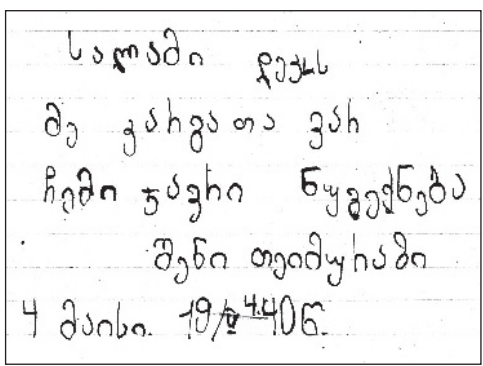 სალამი
მე კარგათა ვარ
ჩემი ჯავრი ნუ გექნება
შენი თეიმურაზი
4 მაისი. 19/V 4.40წ.